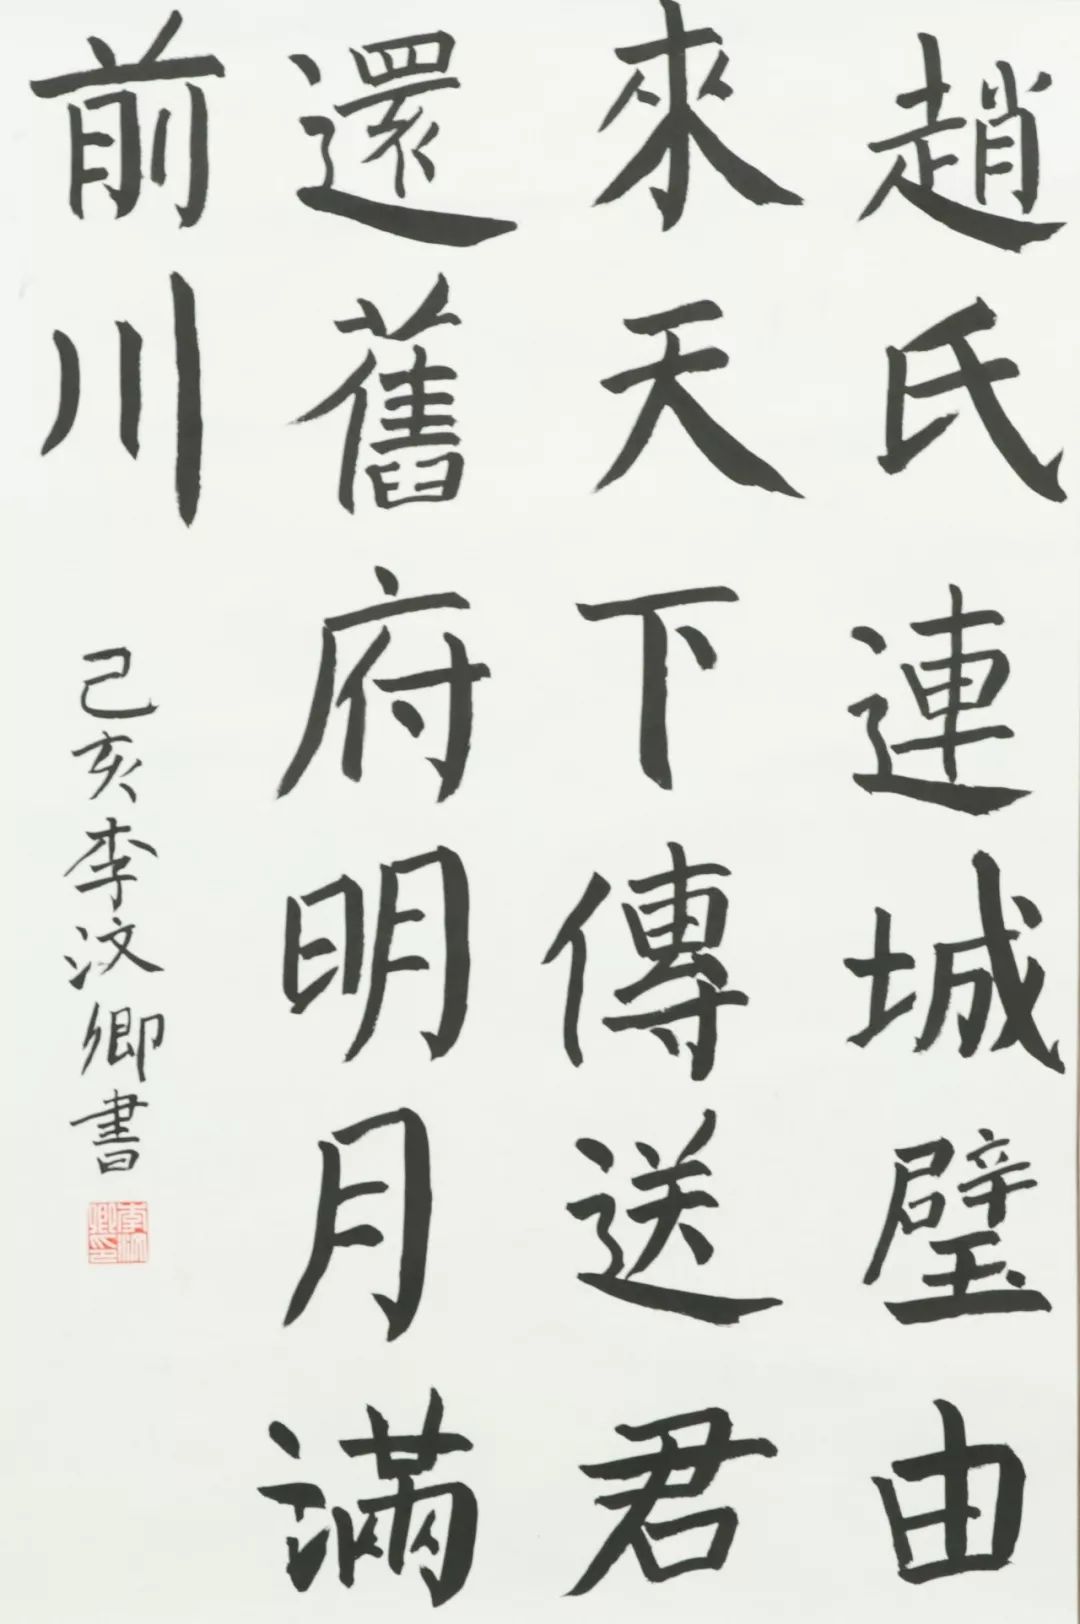 趙氏連城璧由
來天下傳送君
還舊府明月滿
前川
己亥李汶卿書
李汶卿印